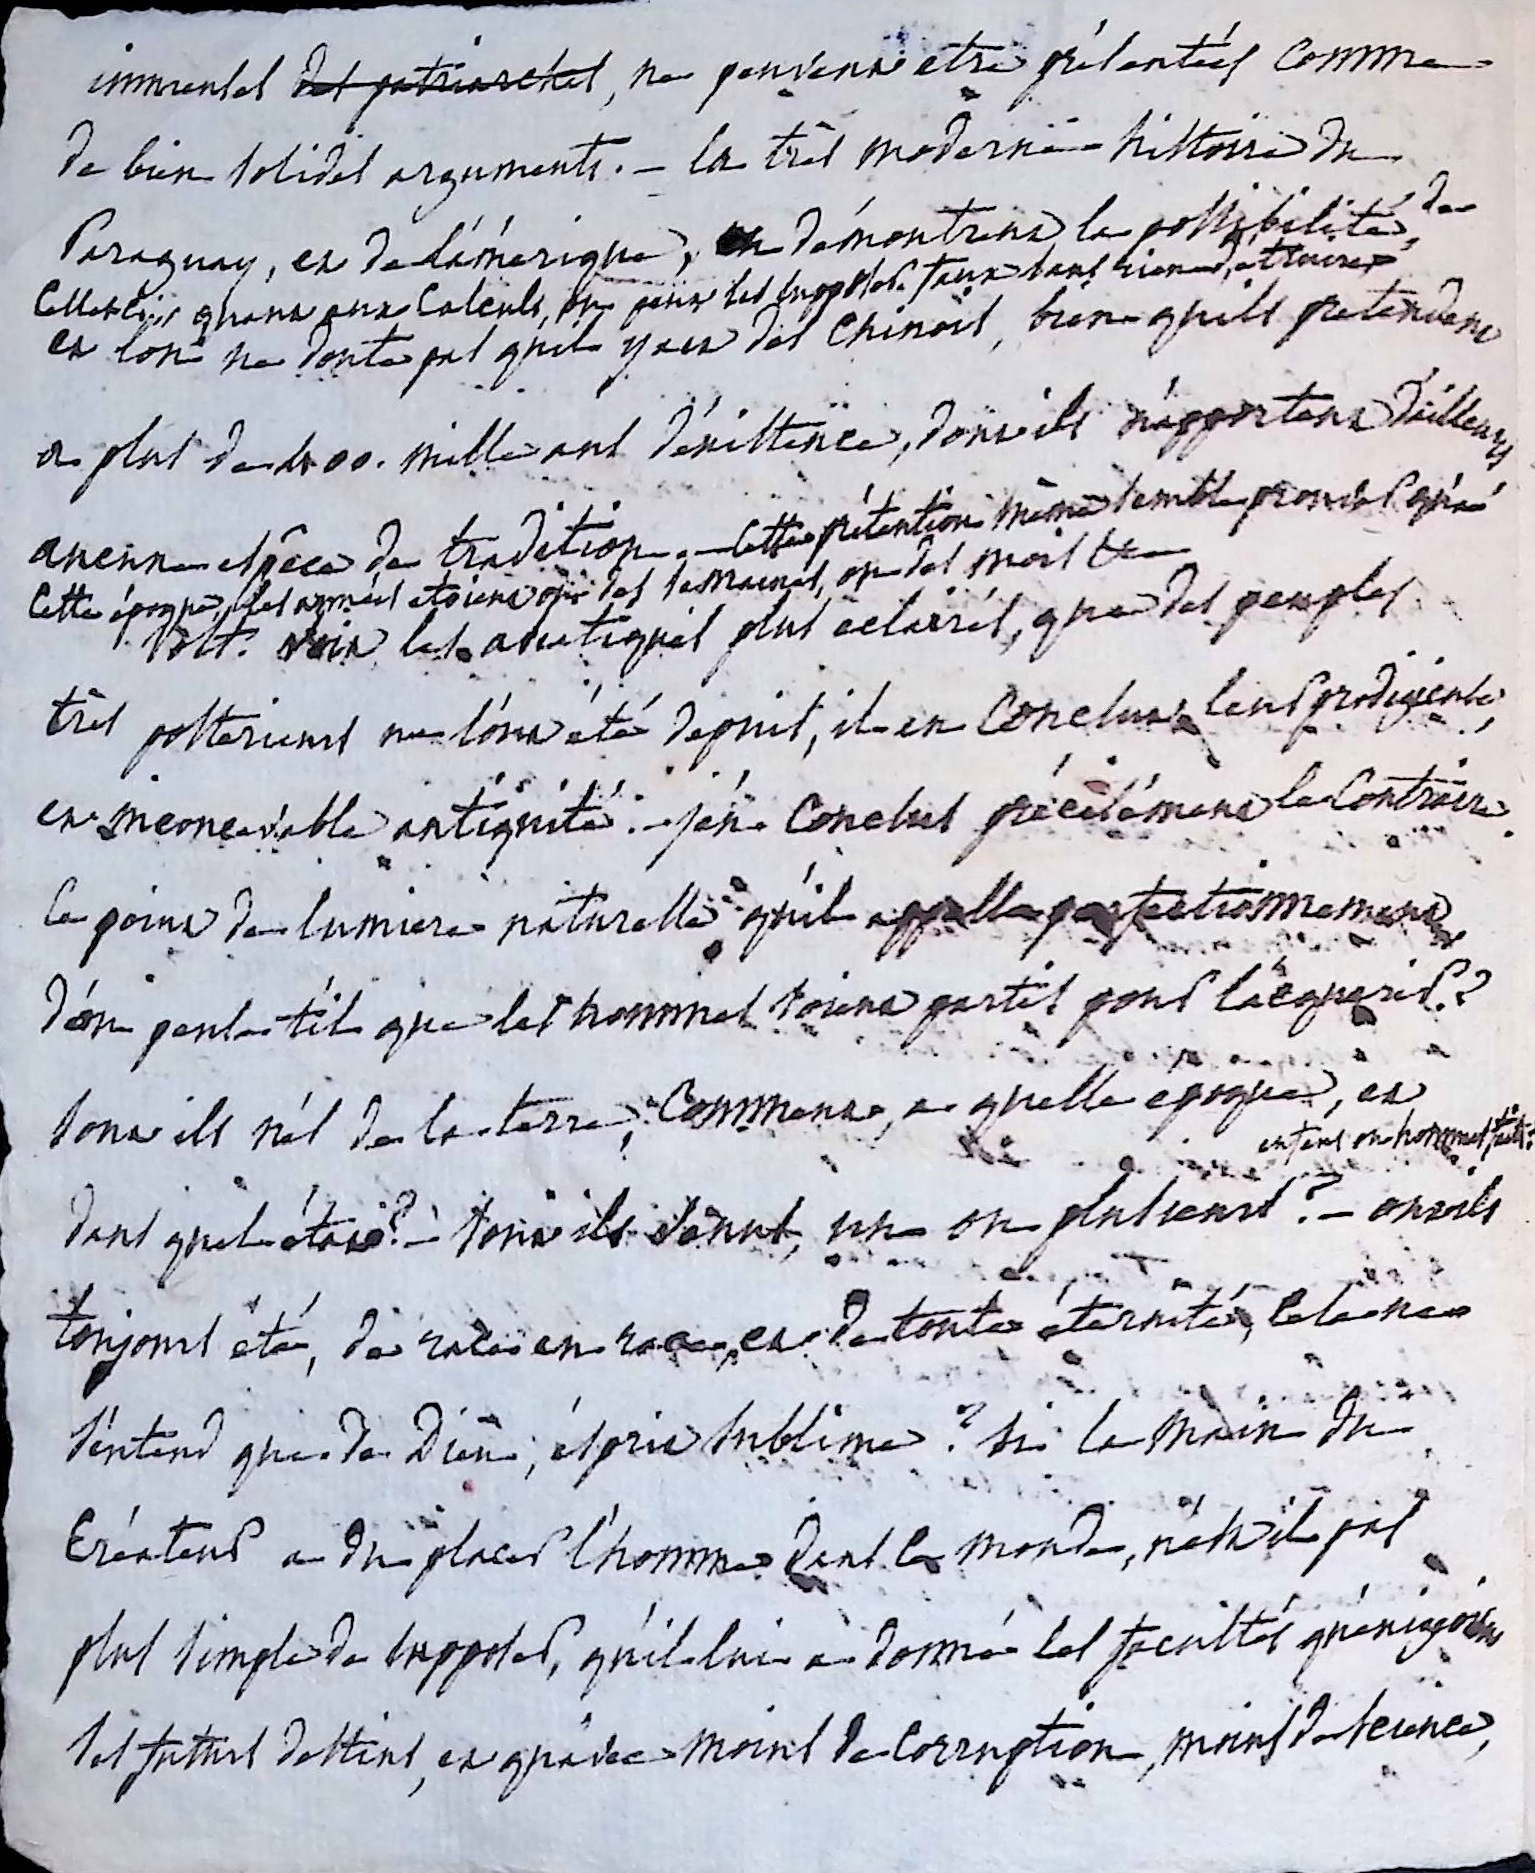 immenses des patriarches, ne peuvent etre présentées comme
de bien solides arguments. – la très moderne histoire du
Paraguay, et de l'amérique, en démontrent la possibilité, de
celles ci; quant aux calculs, on peut les supposer faux sans rien détruire
et l'on ne doute pas quil y ait des chinois, bien quils pretendent
a plus de 400. mille ans d'éxistence, dont ils n'apportent d'ailleurs
aucune espèce de tradition. – cette prétention même semble prouver qu'a
cette époque, les années étoient ou des semaines, ou des mois &c
Volt. voit les asiatiques plus eclairés, que des peuples
très posterieurs ne l'ont été depuis, il en conclut leur prodigieuse,
et inconcevable antiquité. – j'en conclus précisément le contraire.
ce point de lumiere naturelle qu'il appelle perfectionnement
d'où pense t'il que les hommes soient partis pour l'acquerir?
sont ils nés de la terre, comment, a quelle époque, et
enfans ou hommes faits?
dans quel état? – sont ils venus, un ou plusieurs? – ont ils
toujours été, de race en race, et de toute éternité, cela ne
s'entend que de Dieu, ésprit sublime? si la main du
Créateur a du placer l'homme dans le monde, n'est il pas
plus simple de supposer, qu'il lui a donné les facultés qu'exigeoient
ses futurs destins, et qu'avec moins de corruption, moins de science,